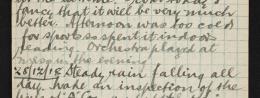 fancy that it will be very much
better. Afternoon was too cold
for sports so spent it indoors
reading. Orchestra played at
in the evening
25/12/18 Steady rain falling all
day. Made an inspection of the